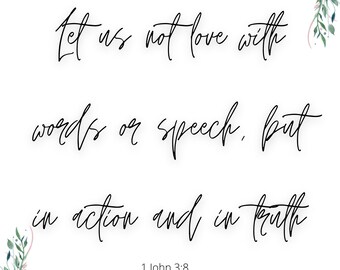 Let us not love with
words or speech, but
in action and in truth
1 John 3:8